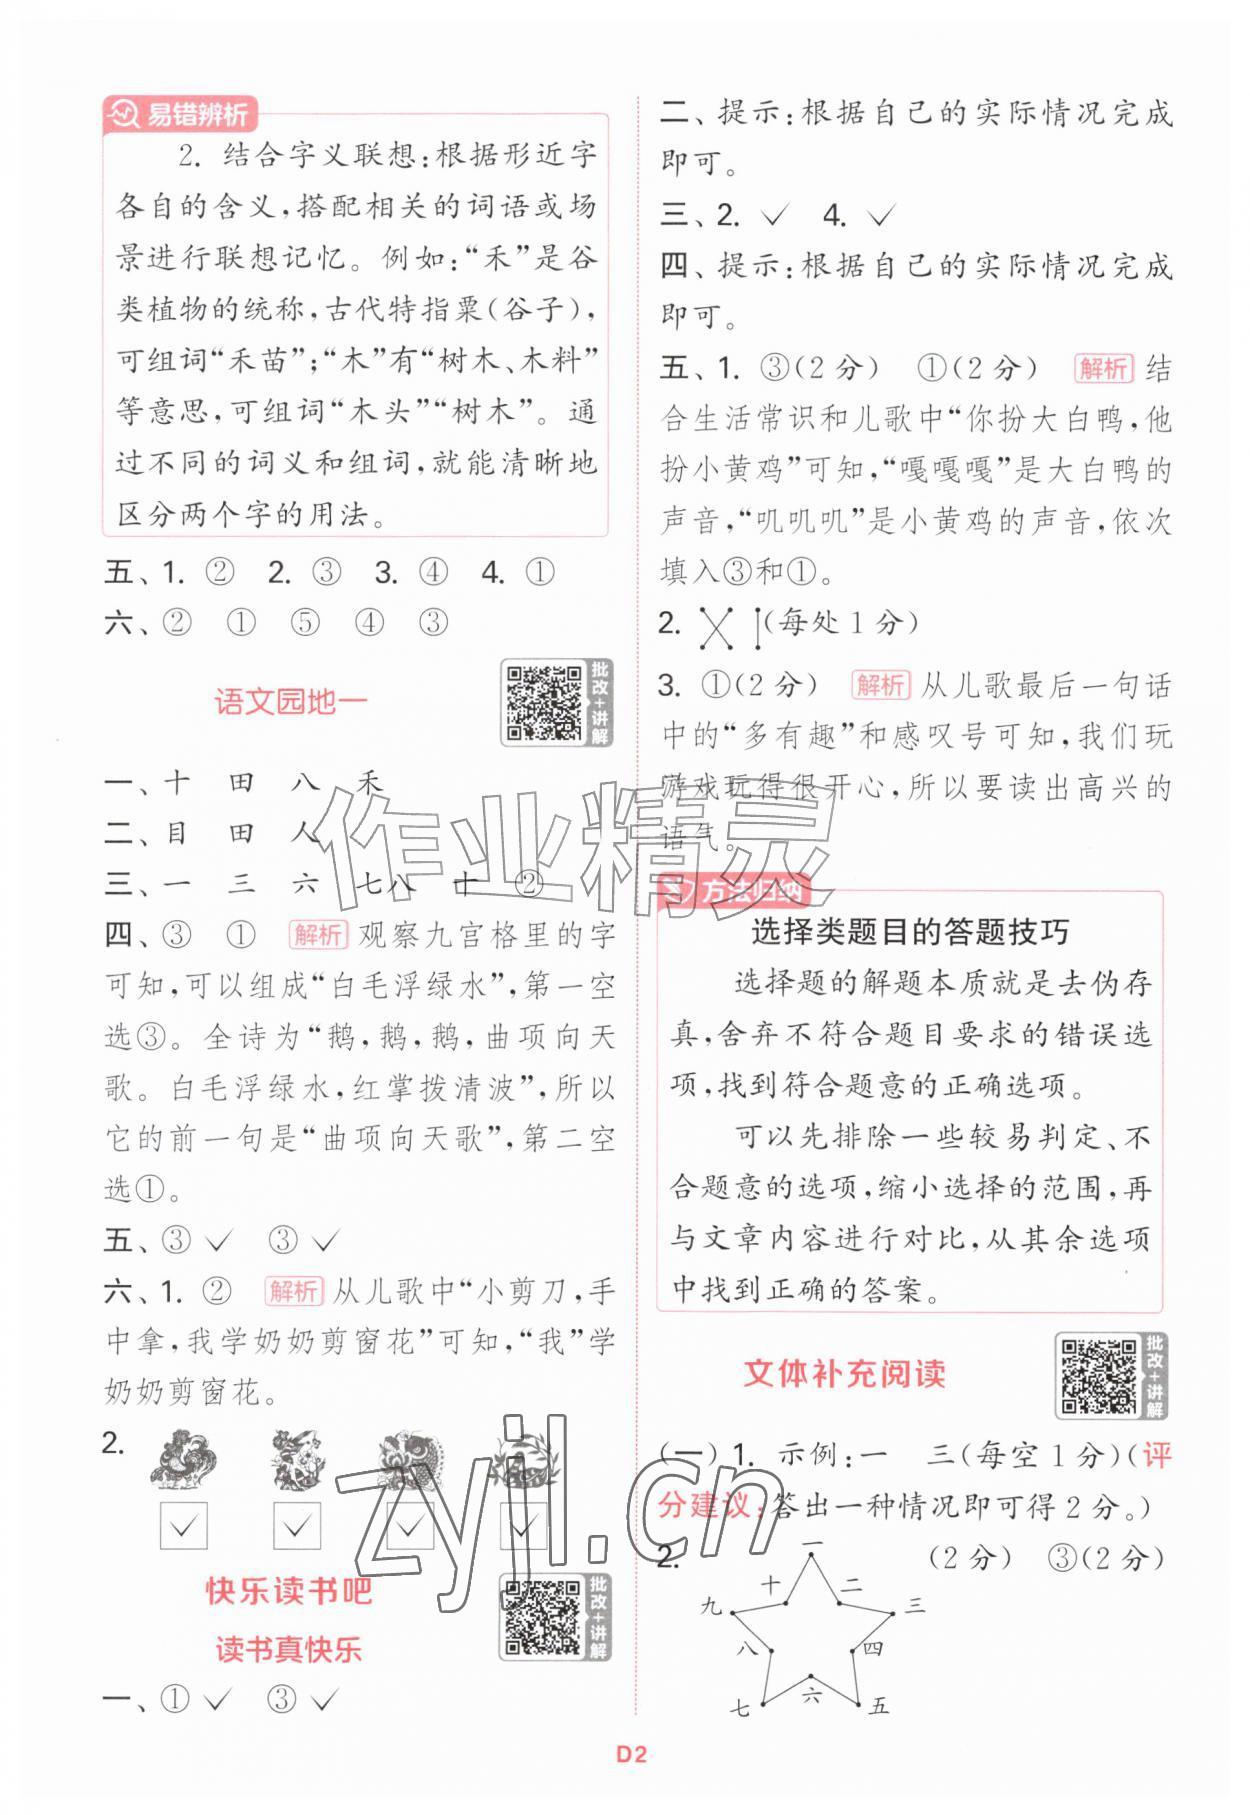 易错辨析
2. 结合字义联想：根据形近字
各自的含义，搭配相关的词语或场
景进行联想记忆。例如：“禾”是谷
类植物的统称，古代特指粟（谷子），
可组词“禾苗”；“木”有“树木、木料”
等意思，可组词“木头”“树木”。通
过不同的词义和组词，就能清晰地
区分两个字的用法。
五、1. ② 2. ③ 3. ④ 4. ①
六、② ① ⑤ ④ ③
语文园地一
批改+讲解
一、十 田 八 禾
二、目 田 人
三、一 三 六 七八 十 ②
四、③ ① 解析 观察九宫格里的字
可知，可以组成“白毛浮绿水”，第一空
选③。全诗为“鹅，鹅，鹅，曲项向天
歌。白毛浮绿水，红掌拨清波”，所以
它的前一句是“曲项向天歌”，第二空
选①。
五、③✓ ③✓
六、1. ② 解析 从儿歌中“小剪刀，手
中拿，我学奶奶剪窗花”可知，“我”学
奶奶剪窗花。
2.
✓ ✓ ✓ ✓
快乐读书吧
读书真快乐
批改+讲解
一、①✓ ③✓
二、提示：根据自己的实际情况完成
即可。
三、2. ✓ 4. ✓
四、提示：根据自己的实际情况完成
即可。
五、1. ③(2分) ①(2分) 解析 结
合生活常识和儿歌中“你扮大白鸭，他
扮小黄鸡”可知，“嘎嘎嘎”是大白鸭的
声音，“叽叽叽”是小黄鸡的声音，依次
填入③和①。
2. (每处1分)
3. ①(2分) 解析 从儿歌最后一句话
中的“多有趣”和感叹号可知，我们玩
游戏玩得很开心，所以要读出高兴的
语气。
方法归纳
选择类题目的答题技巧
选择题的解题本质就是去伪存
真，舍弃不符合题目要求的错误选
项，找到符合题意的正确选项。
可以先排除一些较易判定、不
合题意的选项，缩小选择的范围，再
与文章内容进行对比，从其余选项
中找到正确的答案。
文体补充阅读
批改+讲解
(一)1. 示例：一 三(每空1分)(评
分建议：答出一种情况即可得2分。)
2. (2分) ③(2分)
一
十 二
九 三
八 四
七 六 五
作业精灵
zyjl.cn
D2